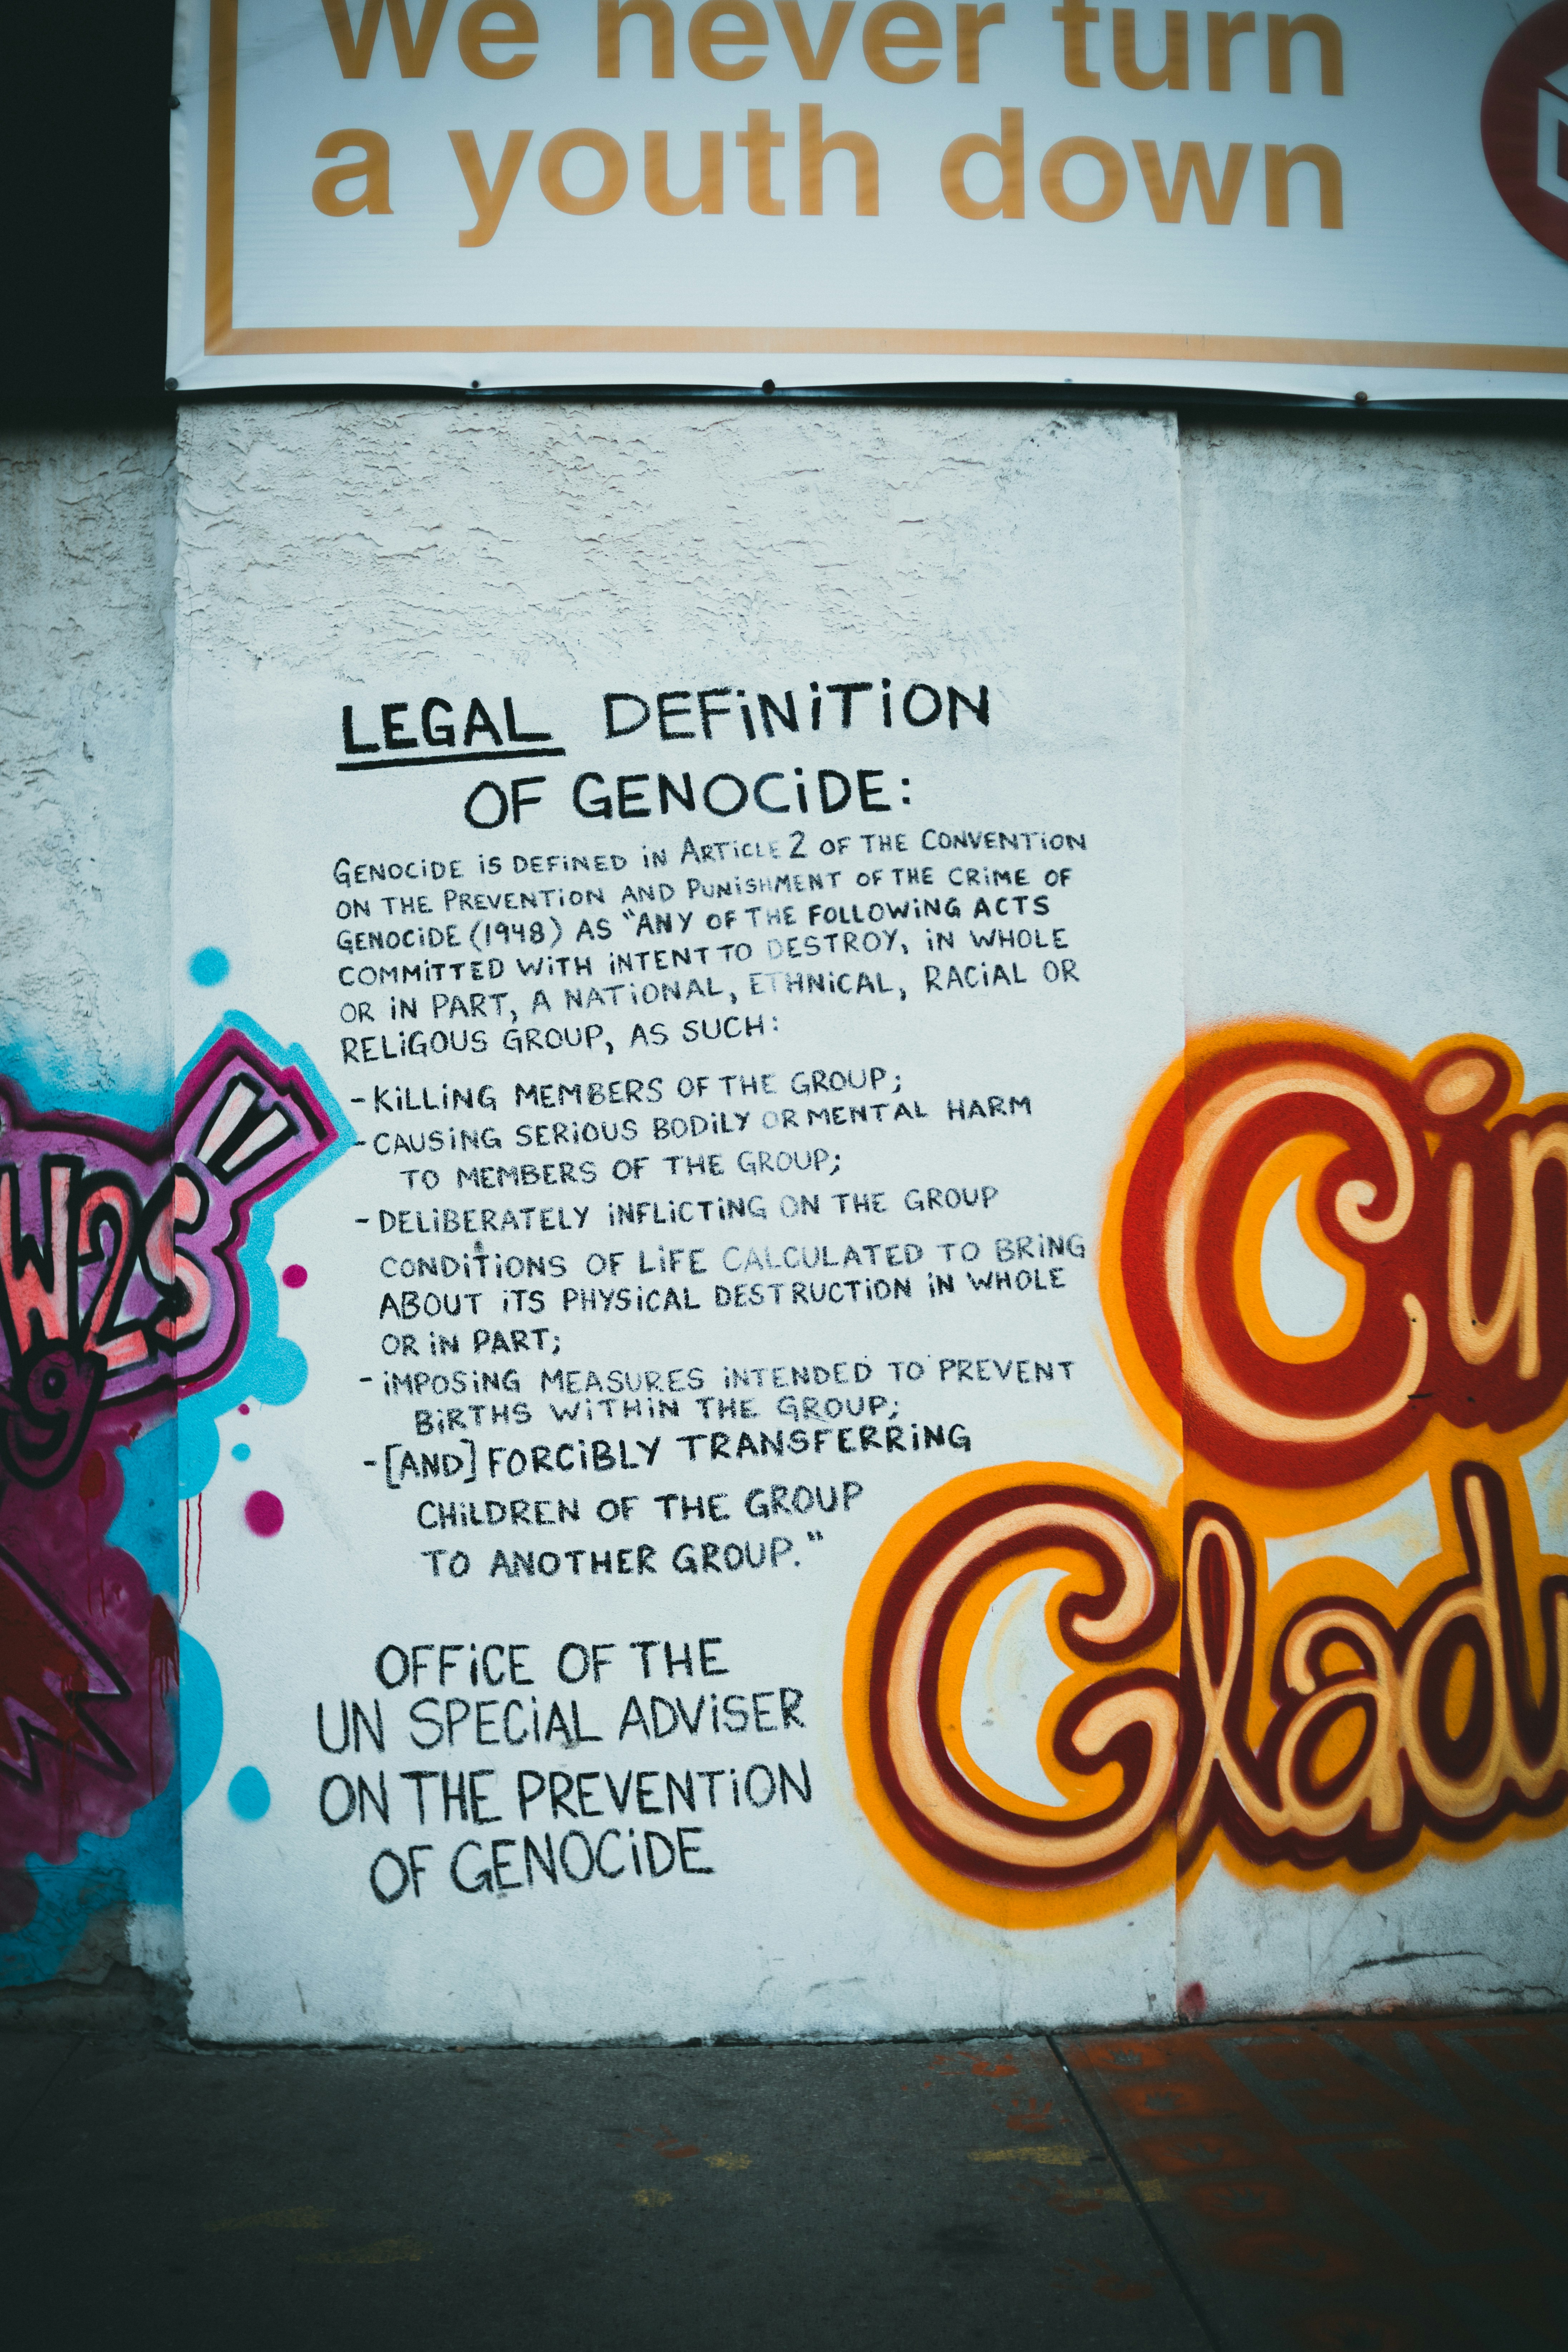 We never turn
a youth down
LEGAL DEFiNiTiON
OF GENOCiDE:
GENOCiDE iS DEFiNED iN ARTiCLE 2 OF THE CONVENTiON
ON THE PREVENTiON AND PUNiSHMENT OF THE CRiME OF
GENOCiDE (1948) AS "ANY OF THE FOLLOWiNG ACTS
COMMiTTED WiTH iNTENT TO DESTROY, iN WHOLE
OR iN PART, A NATiONAL, ETHNiCAL, RACiAL OR
RELiGOUS GROUP, AS SUCH:
- KiLLiNG MEMBERS OF THE GROUP;
- CAUSiNG SERiOUS BODiLY OR MENTAL HARM
TO MEMBERS OF THE GROUP;
- DELiBERATELY iNFLiCTiNG ON THE GROUP
CONDiTiONS OF LiFE CALCULATED TO BRiNG
ABOUT iTS PHYSiCAL DESTRUCTiON iN WHOLE
OR iN PART;
- iMPOSiNG MEASURES iNTENDED TO PREVENT
BiRTHS WiTHiN THE GROUP;
- [AND] FORCiBLY TRANSFERRiNG
CHiLDREN OF THE GROUP
TO ANOTHER GROUP."
OFFiCE OF THE
UN SPECiAL ADViSER
ON THE PREVENTiON
OF GENOCiDE
W2S
Cin
Glad